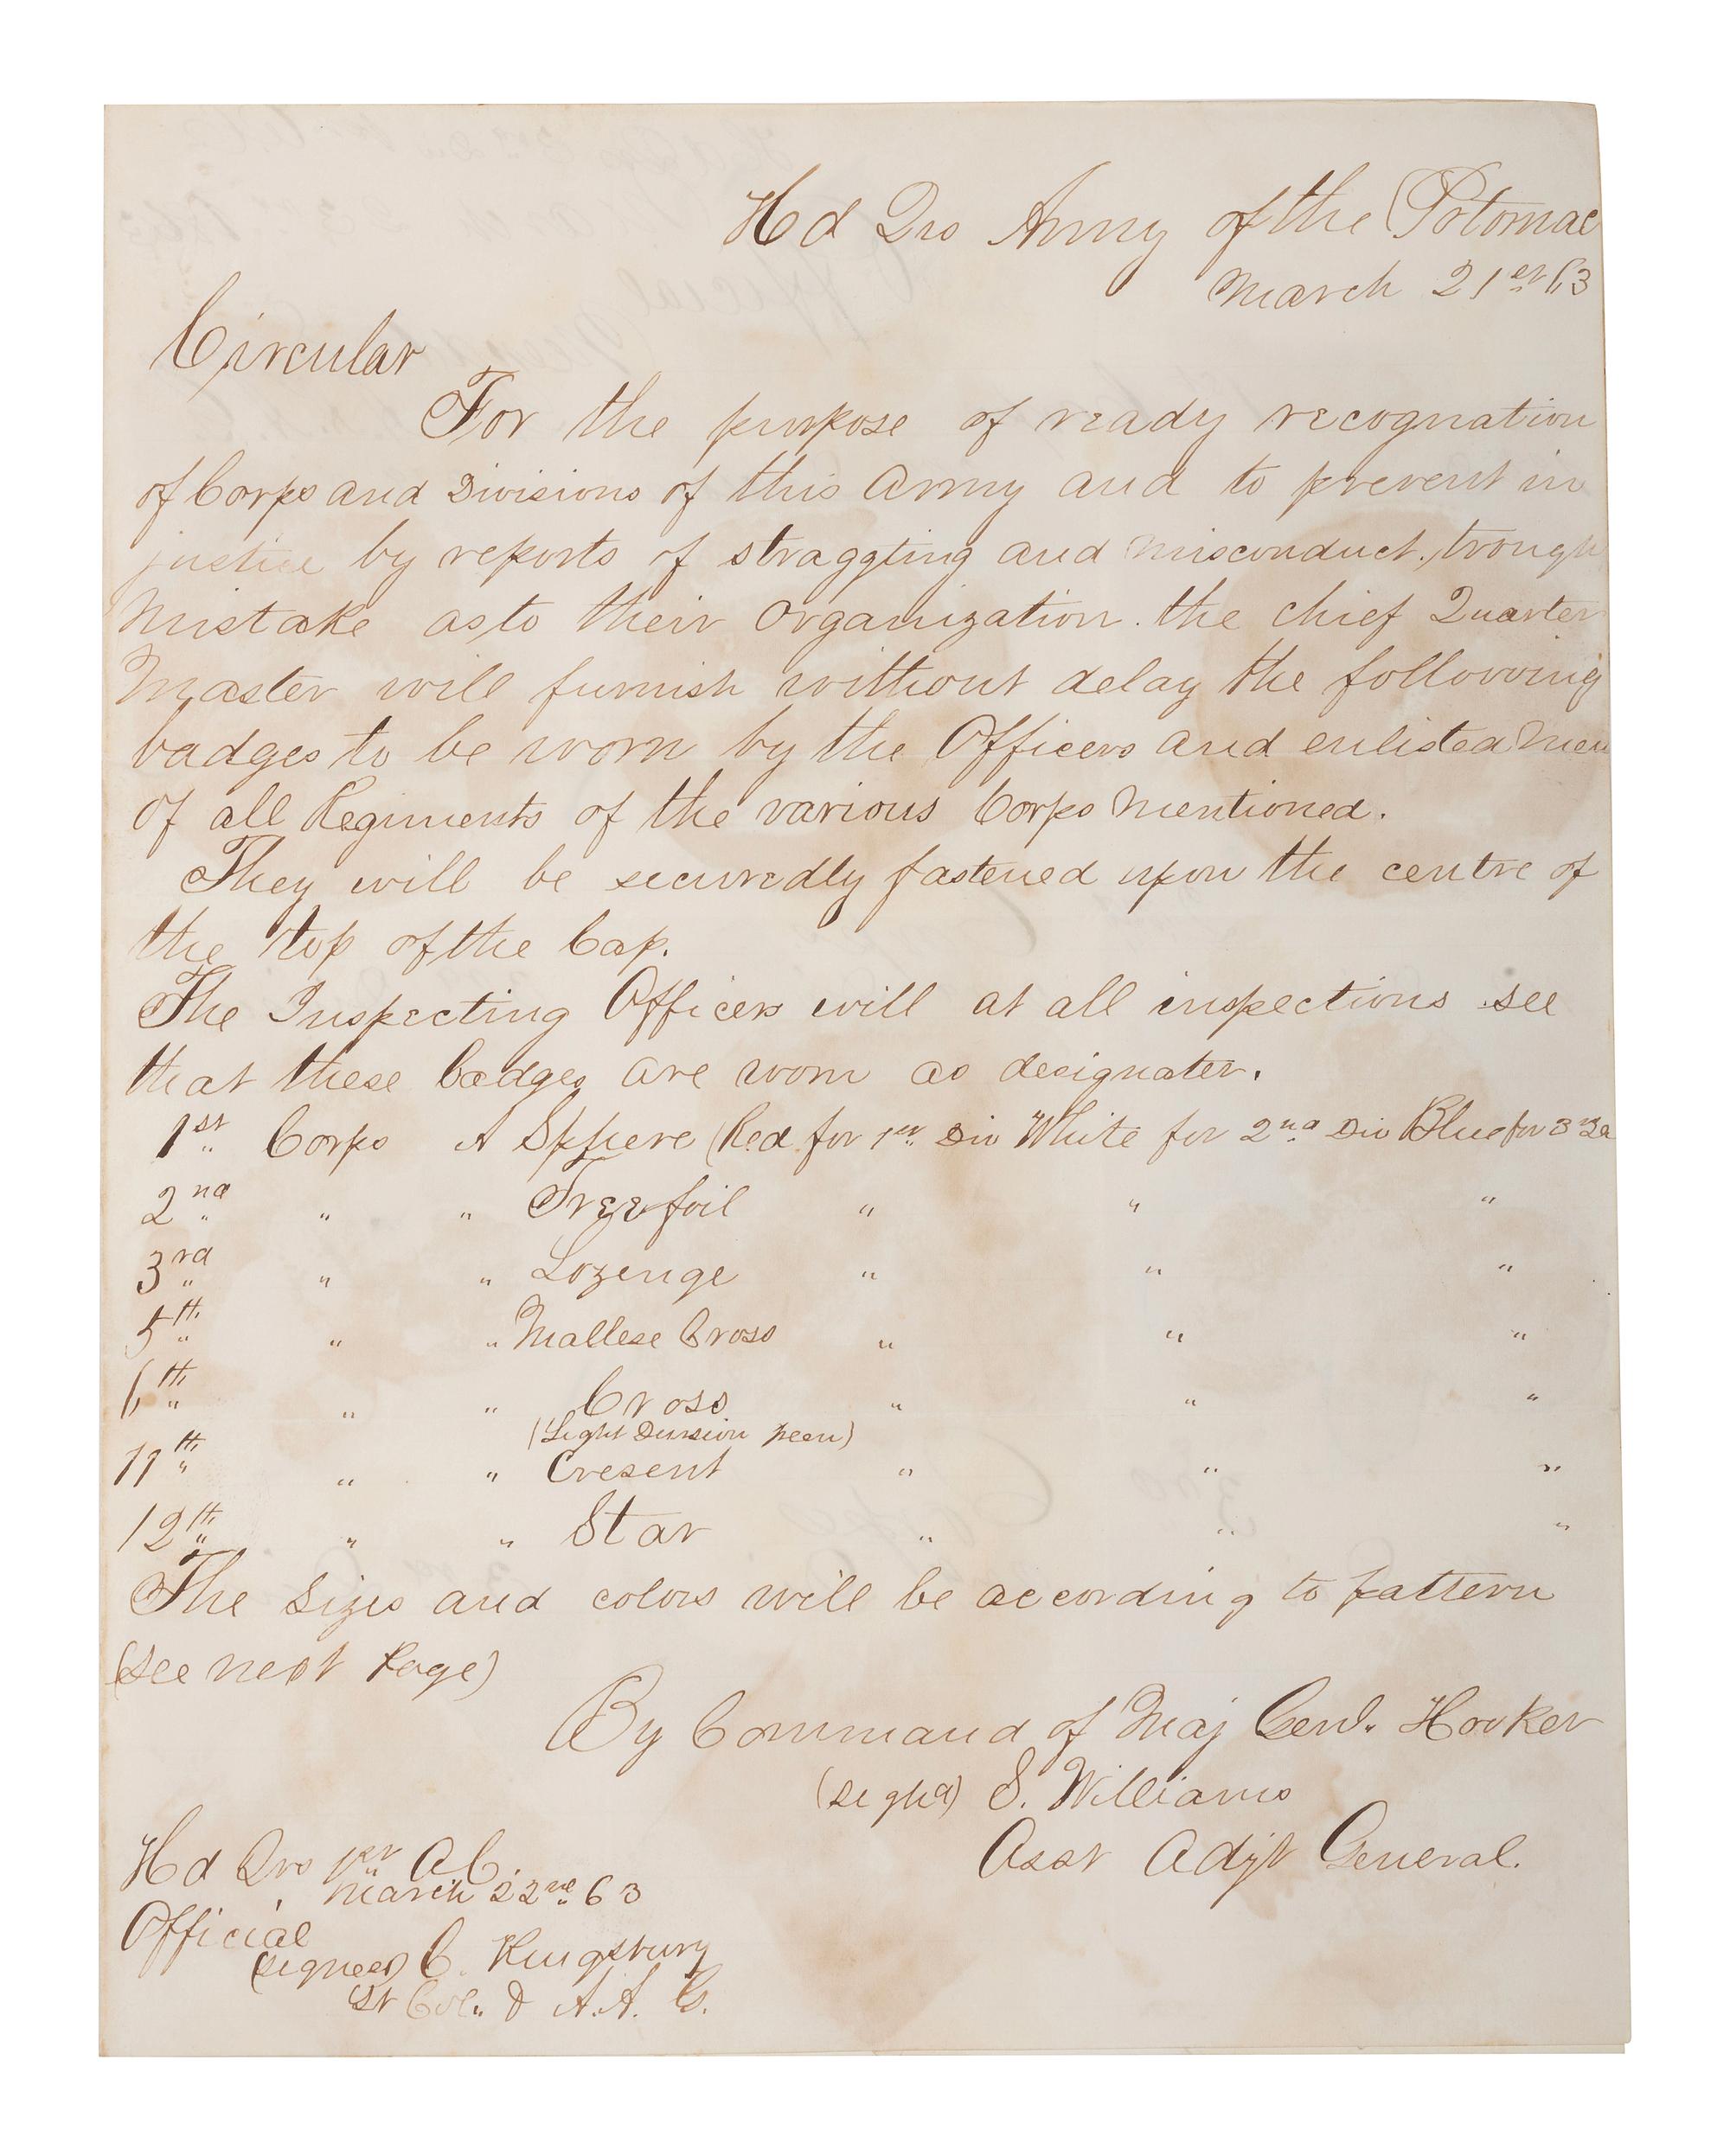 Hd Qrs Army of the Potomac
March 21st 63
Circular
For the purpose of ready recognation
of Corps and Divisions of this Army and to prevent in
justice by reports of straggting and misconduct, trough
mistake as to their organization. the chief Quarter
Master will furnish without delay the following
badges to be worn by the Officers and enlisted men
of all Regiments of the various Corps mentioned.
They will be securedly fastened upon the centre of
the top of the Cap.
The Inspecting Officers will at all inspections see
that these badges are worn as designater.
1st " Corps A Sphere (Red for 1st Div White for 2nd Div Blue for 3rd
2nd " " " Treefoil " " "
3rd " " " Lozenge " " "
5th " " " Mallese Cross " " "
6th " " " Cross " " "
(Light Division)
11th " " " Cresent " " "
12th " " " Star " " "
The Sizes and colors will be according to pattern
(see next Page)
By Command of Maj Genl. Hooker
S. Williams
Asst Adjt General.
Hd Qrs 1st A C.
March 22nd 63
Official
(signed) C. Kingsbury
Lt Col. & A. A. G.